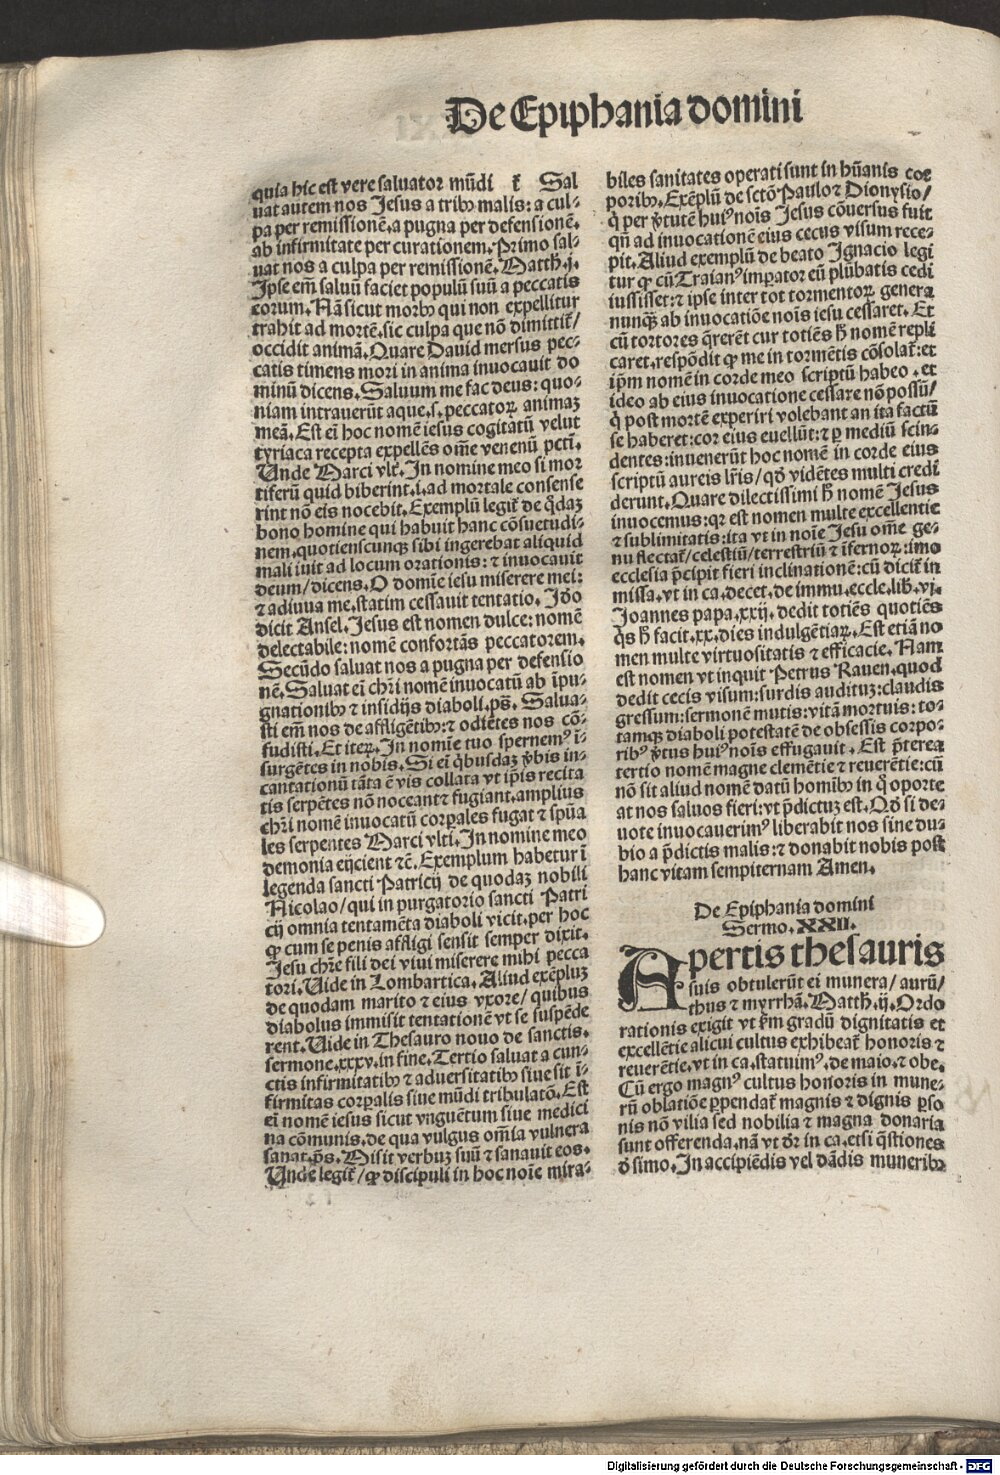 De Epiphania domini
quia hic est vere saluator mūdi ꝛc̄ Sal
uat autem nos Jesus a tribꝰ malis: a cul⸗
pa per remissionē. a pugna per defensionē.
ab infirmitate per curationem. Primo sal⸗
uat nos a culpa per remissionē. Matth. j.
Ipse em̄ saluū faciet populū suū a peccatis
eorum. Nā sicut morbꝰ qui non expellitur
trahit ad mortē. sic culpa que nō dimittit᷑/
occidit animā. Quare Dauid mersus pec⸗
catis timens mori in anima inuocauit do
minū dicens. Saluum me fac deus: quo⸗
niam intrauerūt aque .s. peccatoꝝ animaꝫ
meā. Est em̄ hoc nomē iesus cogitatū velut
tyriaca recepta expellēs om̄e venenū pct̄i.
Unde Marci vlt̄. In nomine meo si mor
tiferū quid biberint .i. ad mortale consense
rint nō eis nocebit. Exemplū legit᷑ de q̄daꝫ
bono homine qui habuit hanc cōsuetudi⸗
nem. quotienscunqꝫ sibi ingerebat aliquid
mali iuit ad locum orationis: ⁊ inuocauit
deum/dicens. O domīe iesu miserere mei:
⁊ adiuua me. statim cessauit tentatio. Iꝺ̄o
dicit Ansel. Jesus est nomen dulce: nomē
delectabile: nomē confortās peccatorem.
Secūdo saluat nos a pugna per defensio
nē. Saluat em̄ chr̄i nomē inuocatū ab īpu⸗
gnationibꝰ ⁊ insidijs diaboli. ps̄. Salua⸗
sti em̄ nos de affligētibꝰ: ⁊ odiētes nos cō⸗
fudisti. Et iteꝝ. In nomīe tuo spernemꝰ ī⸗
surgētes in nobis. Si em̄ q̄busdaꝫ v̄bis in⸗
cantationū tāta ē vis collata vt ip̄is recita
tis serpētes nō noceant ⁊ fugiant. amplius
chr̄i nomē inuocatū corꝑales fugat ⁊ spūa
les serpentes Marci vlti. In nomine meo
demonia eijcient ⁊c̄. Exemplum habetur ī
legenda sancti Patricij de quodaꝫ nobili
Nicolao/qui in purgatorio sancti Patri
cij omnia tentamēta diaboli vicit. per hoc
ꝙ cum se penis affligi sensit semper dixit.
Jesu chr̄e fili dei viui miserere mihi pecca
tori. Uide in Lombartica. Aliud exēpluꝫ
de quodam marito ⁊ eius vxore/ quibus
diabolus immisit tentationē vt se suspēde
rent. Uide in Thesauro nouo de sanctis.
sermone. xxxv. in fine. Tertio saluat a cun⸗
ctis infirmitatibꝰ ⁊ aduersitatibꝰ siue sit ī⸗
firmitas corꝑalis siue mūdi tribulatō. Est
em̄ nomē iesus sicut vnguētum siue medici
na cōmunis. de qua vulgus om̄ia vulnera
sanat. ps̄. Misit verbuꝫ suū ⁊ sanauit eos.
Unde legit᷑/ꝙ discipuli in hoc noīe mira⸗
biles sanitates operati sunt in hūanis coꝛ
poribꝰ. Exēplū de sctō Paulo ⁊ Dionysio/
q̄ per v̄tutē huiꝰ noīs Jesus cōuersus fuit
qn̄ ad inuocationē eius cecus visum rece⸗
pit. Aliud exemplū de beato Ignacio legi
tur ꝙ cū Traianꝰ imꝑator eū plūbatis cedi
iussisset: ⁊ ipse inter tot tormentoꝝ genera
nunqꝫ ab inuocatiōe noīs iesu cessaret. Et
cū tortores q̄rerēt cur totiēs h̄ nomē repli
caret. respōdit ꝙ me in tormētis cōsolat᷑: et
ip̄m nomē in corde meo scriptū habeo. et
ideo ab eius inuocatione cessare nō possū/
q̄ post mortē experiri volebant an ita factū
se haberet: cor eius euellūt: ⁊ ꝑ mediū scin⸗
dentes: inuenerūt hoc nomē in corde eius
scriptū aureis lr̄is/ qꝺ̄ vidētes multi credi
derunt. Quare dilectissimi h̄ nomē Jesus
inuocemus: qꝛ est nomen multe excellentie
⁊ sublimitatis: ita vt in noīe Jesu om̄e ge⸗
nu flectat᷑/celestiū/terrestriū ⁊ īfernoꝝ: imo
ecclesia p̄cipit fieri inclinationē: cū dicit᷑ in
missa. vt in ca. decet. de immu. eccle. lib. vj.
Joannes papa. xxij. dedit totiēs quotiēs
q̄s h̄ facit. xx. dies indulgētiaꝝ. Est etiā no
men multe virtuositatis ⁊ efficacie. Nam
est nomen vt inquit Petrus Rauen. quod
dedit cecis visum: surdis audituꝫ: claudis
gressum: sermonē mutis: vitā mortuis: to⸗
tamqꝫ diaboli potestatē de obsessis corpo⸗
ribꝰ v̄tus huiꝰ noīs effugauit. Est p̄terea
tertio nomē magne clemētie ⁊ reuerētie: cū
nō sit aliud nomē datū homībꝰ in q̄ oporte
at nos saluos fieri: vt p̄dictuꝫ est. Qꝺ̄ si de⸗
uote inuocauerimꝰ liberabit nos sine du⸗
bio a p̄dictis malis: ⁊ donabit nobis post
hanc vitam sempiternam Amen.
De Epiphania domini
Sermo. XXII.
Apertis thesauris
suis obtulerūt ei munera/ aurū/
thus ⁊ myrrhā. Matth. ij. Ordo
rationis exigit vt ẜm gradū dignitatis et
excellētie alicui cultus exhibeat᷑ honoris ⁊
reuerētie. vt in ca. statuimꝰ. de maio. ⁊ obe.
Cū ergo magnꝰ cultus honoris in mune⸗
rū oblatiōe ꝑpendat᷑ magnis ⁊ dignis ꝑso
nis nō vilia sed nobilia ⁊ magna donaria
sunt offerenda. nā vt dr̄ in ca. etsi q̄stiones
ꝺ̄ simo. In accipiēdis vel dādis muneribꝰ
Digitalisierung gefördert durch die Deutsche Forschungsgemeinschaft - DFG